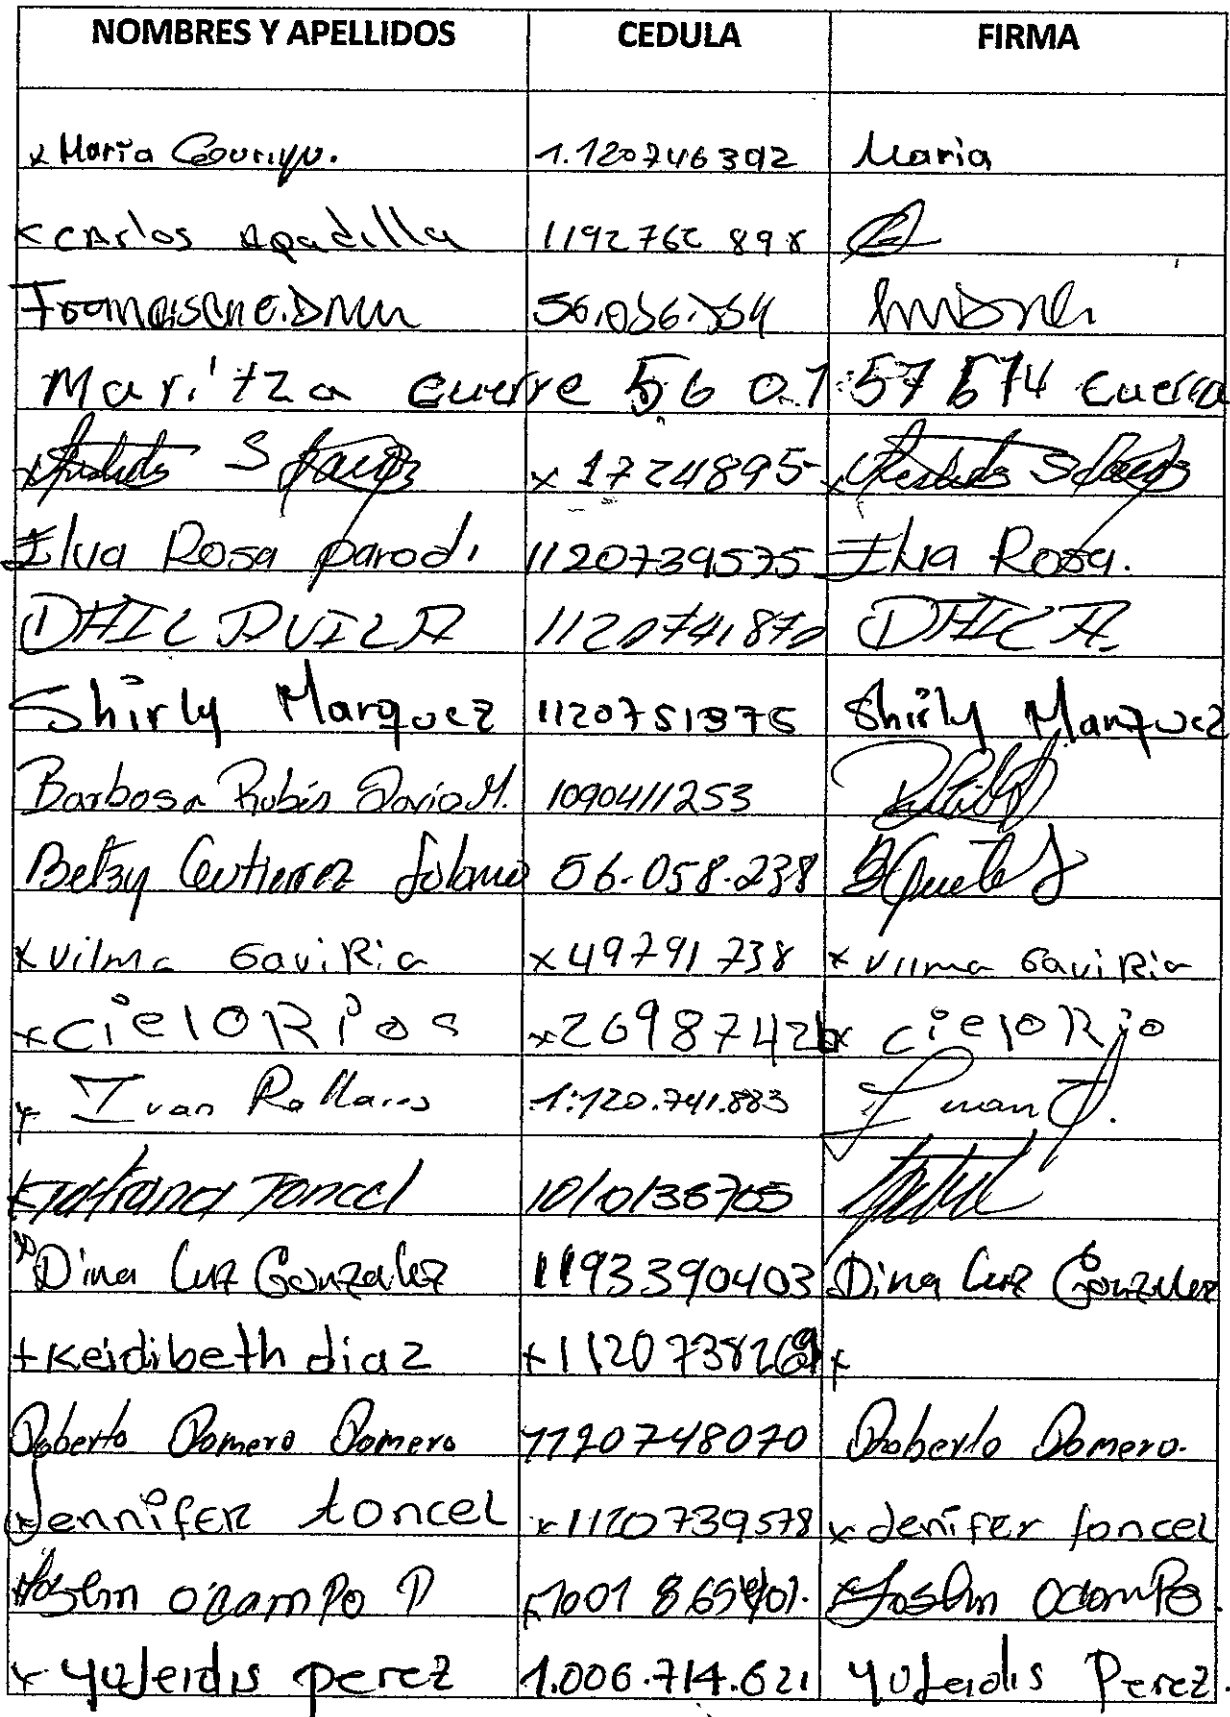 NOMBRES Y APELLIDOS CEDULA FIRMA
x Maria 1.120746392 Maria
x CArlos apadilla 1192762898
56.036.754
Maritza cuerre 56 0.157 574 cuerra
x S x 17224895- x
Ilva Rosa parodi 1120739575 Ilva Rosa.
DAIL AVILA 1120741870 DAIL A.
Shirly Marquez 1120751375 Shirly Marquez
Barbosa Rubén Dario M. 1090411253
Betzy Gutierrez Solano 56.058.238
x vilma GaviRia x 49791738 x vilma GaviRia
x cielo Rios x 26987426 x cielo Rio
x Ivan Pallares 1.120.741.883 Ivan P.
x Tatiana Toncel 1010136705
x Dina Luz Gonzalez 1193390403 Dina Luz Gonzalez
+ Keidibeth diaz + 1120738269 x
Roberto Romero Romero 1120748070 Roberto Romero.
x Jennifer toncel x 1120739578 x Jenifer toncel
Joslin ocampo P x 1001 865401. x Joslin ocampo.
x yuleidis perez 1.006.714.621 yuleidis Perez.